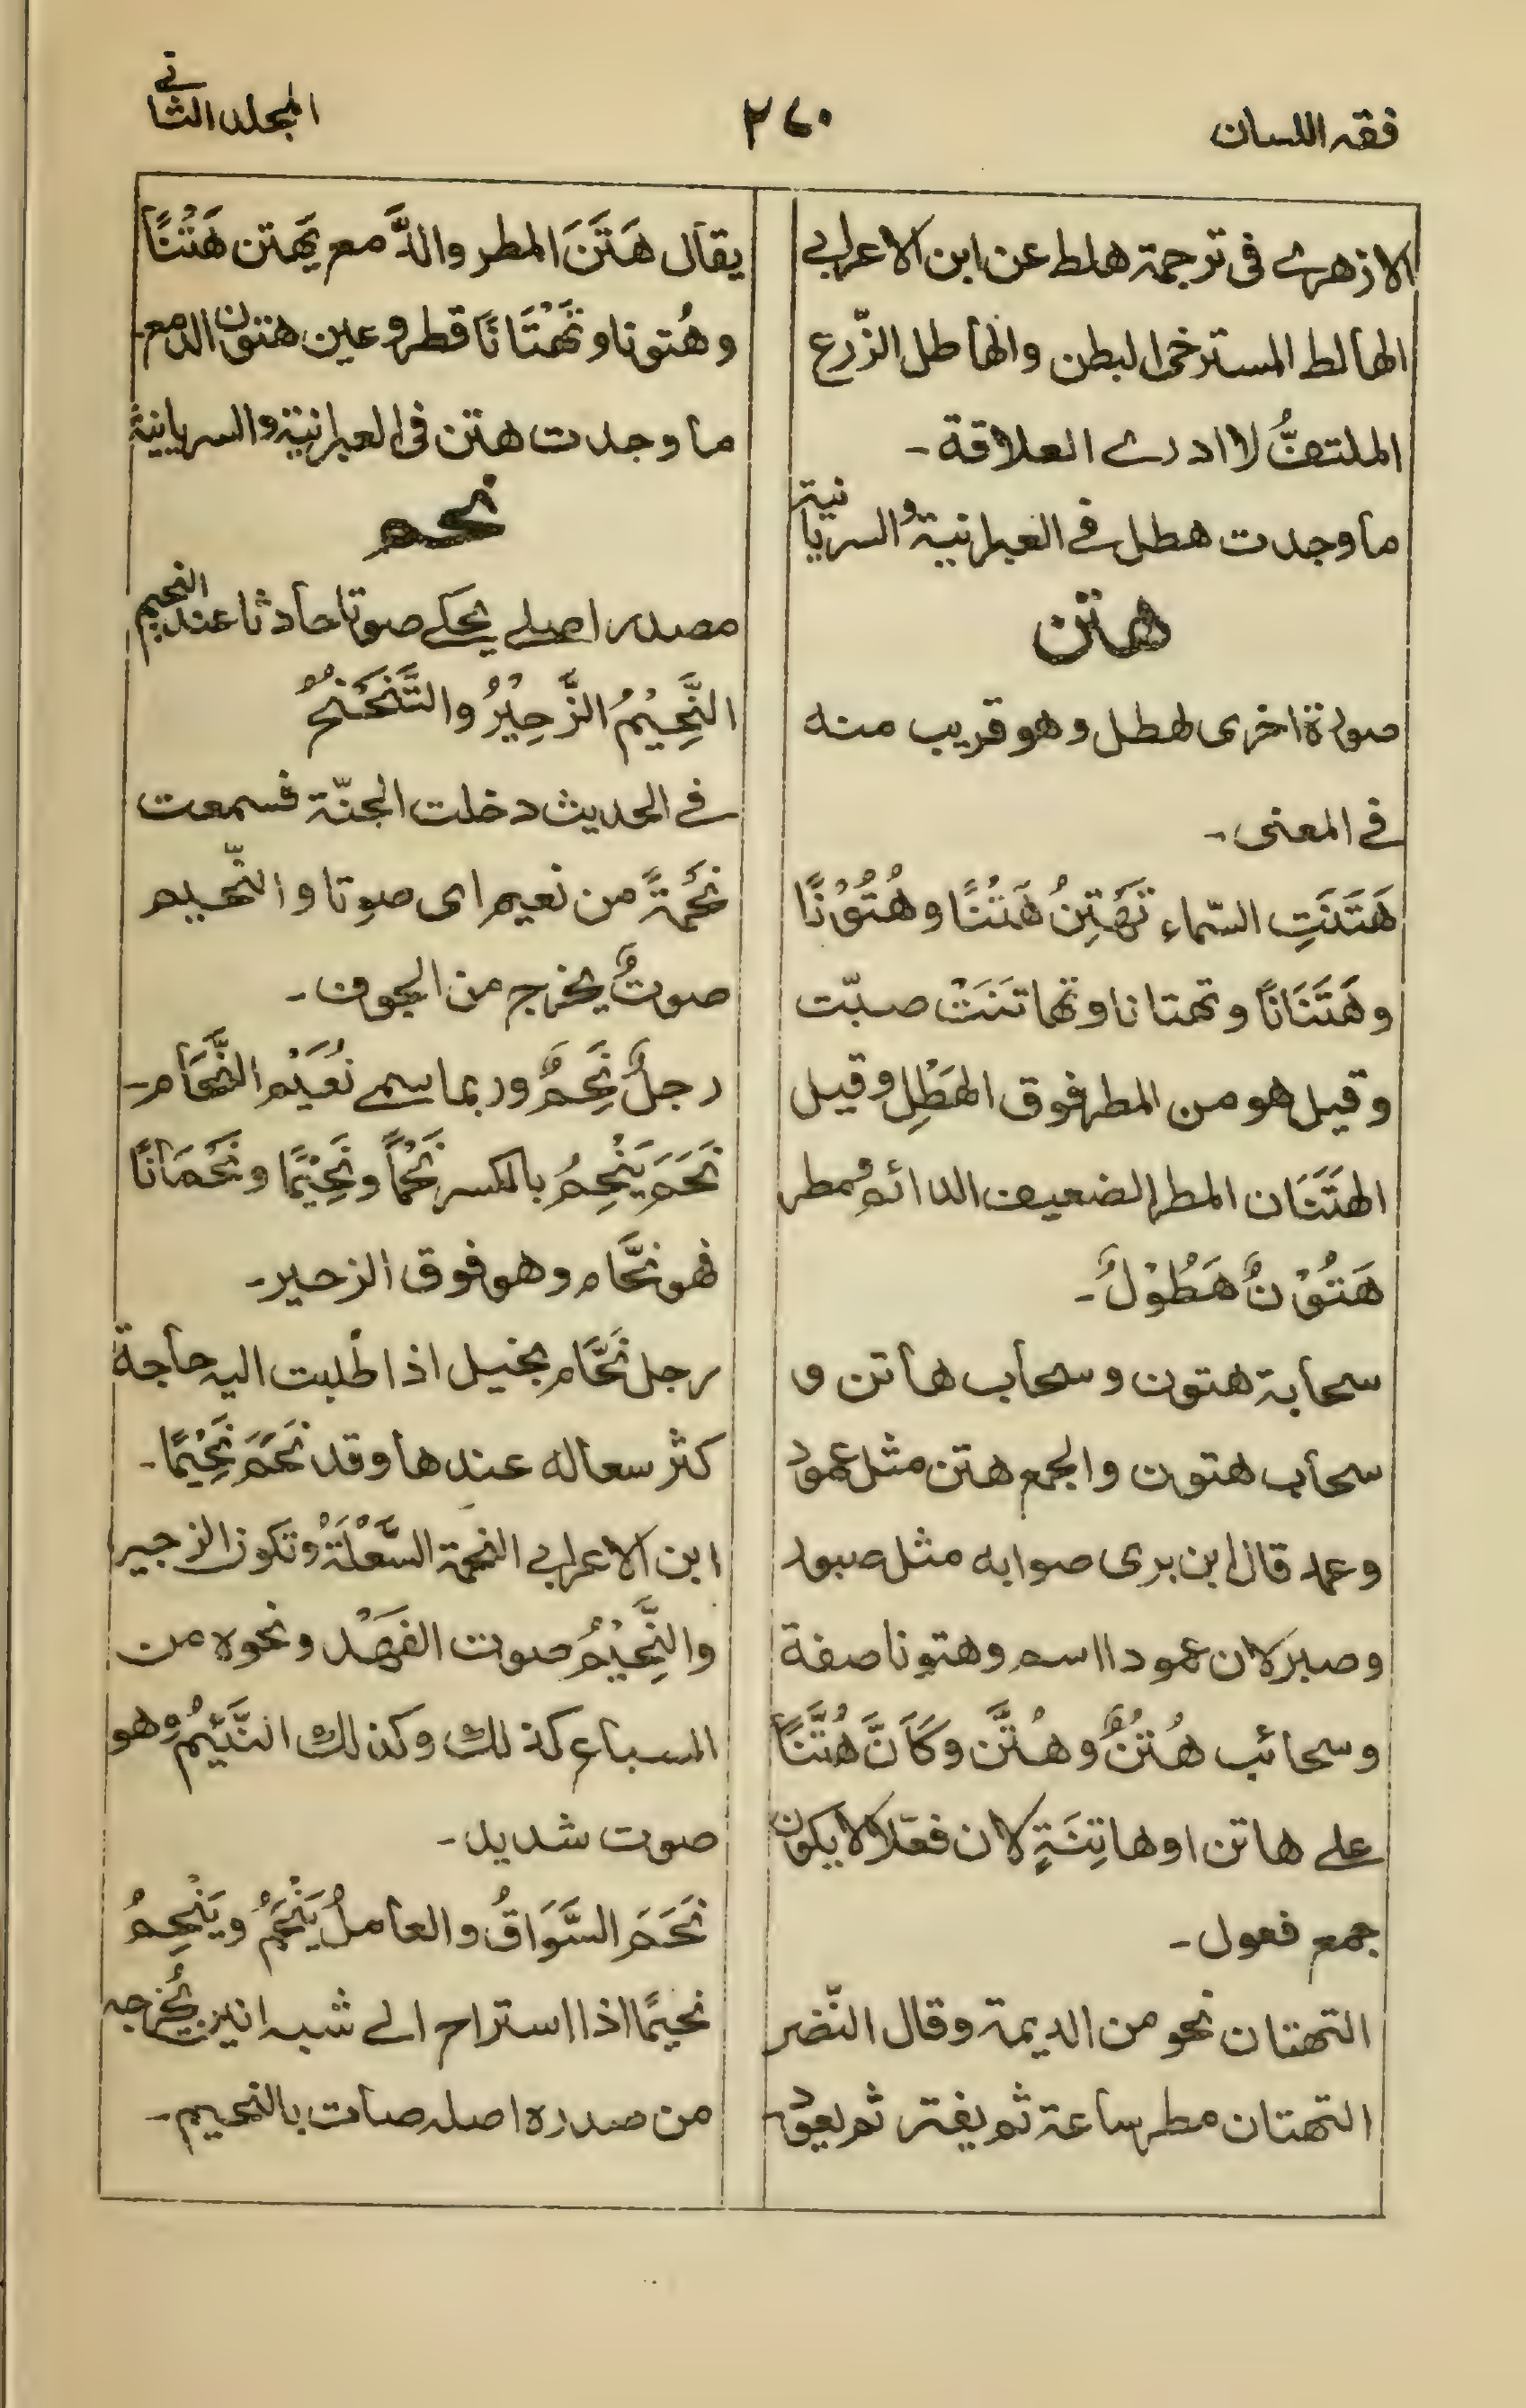 فقه اللسان
٢٦٠
المجلد الثانى
الازهرى فى ترجمة هلط عن ابن الاعرابى
الهالط المسترخى البطن والهاطل الزّرع
الملتفُّ لا ادرى العلاقة -
ما وجدت هطل فى العبرانية والسريانية
هتن
صورة اخرى لهطل وهو قريب منه
فى المعنى -
هَتَنَتِ السّماء تَهْتِنُ هَتْنًا وهُتُوْنًا
وهَتَنَانًا وتهتانا وتهاتَنَتْ صبّت
وقيل هو من المطر فوق الهَطْلِ وقيل
الهَتَنَان المطر الضعيف الدائم ومطر
هَتُوْنٌ هَطُوْلٌ -
سحابة هتون وسحاب هاتن و
سحاب هتون والجمع هتن مثل عمود
وعمد قال ابن برى صوابه مثل صبور
وصبر لان عمودا اسم وهتونا صفة
وسحائب هُتُنٌ وهُتَّن وكَاَنَّ هُتَّنًا
على هاتن او هاتِنَةٍ لان فعّلا لا يكون
جمع فعول -
التهتان نحو من الديمة وقال النّضر
التهتان مطر ساعة ثم يفتر ثم يعود -
يقال هَتَنَ المطر والدَّمع يَهتن هَتْنًا
وهُتونا وتَهْتَانًا قطر وعين هتون الدمع -
ما وجدت هتن فى العبرانية والسريانية
نحم
مصدر اصلى يحكى صوتا حادثا عند النحيم
النَّحِيْمُ الزَّحِيْرُ والتَّنَحْنُحُ
فى الحديث دخلت الجنّة فسمعت
نَحْمَةً من نعيم اى صوتا والنّحيم
صوتٌ يخرج من الجوف -
رجلٌ نَحِمٌ وربما سمى نُعَيْم النَّحَّام -
نَحَمَ يَنْحِمُ بالكسر نَحْمًا ونَحِيْمًا ونَحْمَانًا
فهو نحَّام وهو فوق الزحير -
رجل نَحَّام بخيل اذا طُلبت اليه حاجة
كثر سعاله عندها وقد نَحَمَ نَحِيْمًا -
ابن الاعرابى النحمة السَّعْلَةُ وتكون الزحير
والنَّحِيْمُ صوت الفَهْد ونحوه من
السباع كذلك وكذلك النَّئِيْمُ وهو
صوت شديد -
نَحَمَ السَّوَاقُ والعاملُ يَنْحَمُ ويَنْحِمُ
نحيمًا اذا استراح الى شبه انين يُخرجه
من صدره اصله صات بالنحيم -